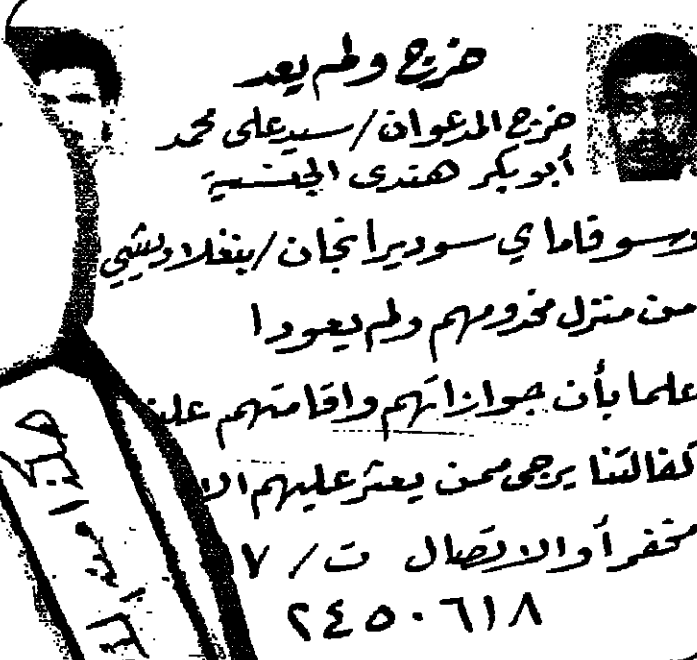 خرج ولم يعد
خرج المدعوان / سيد على محمد
أبوبكر هندى الجنسية
وسوقاماي سوديرانجان / بنغلاديشي
من منزل مخدومهم ولم يعودا
علما بأن جوازاتهم واقامتهم على
كفالتنا يرجى ممن يعثر عليهم
مخفر أو الاتصال ت / ٧
٢٤٥٠٦١٨
هكذا من